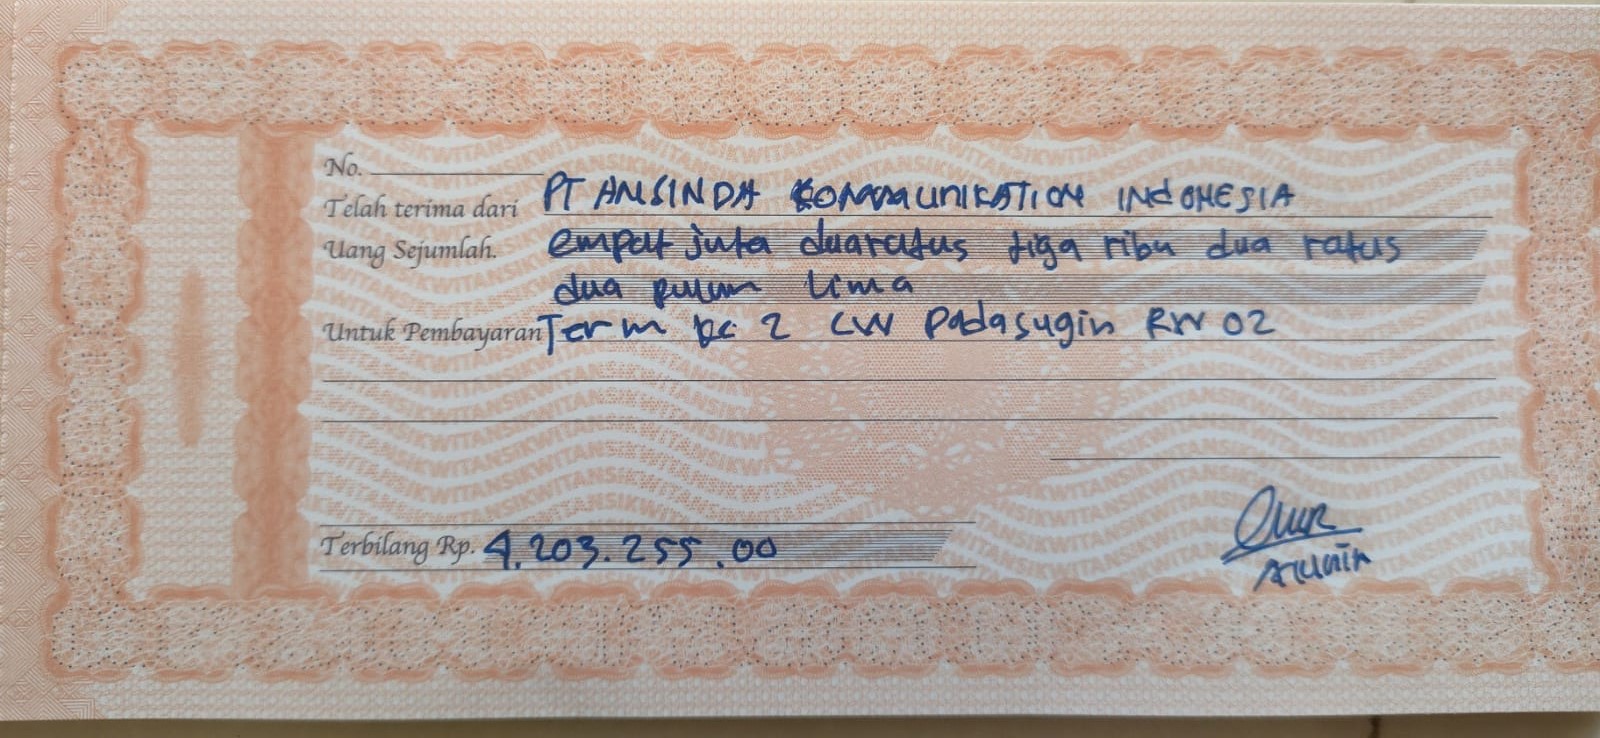 No.
Telah terima dari PT ANSINDA KOMMUNIKATION INDONESIA
Uang Sejumlah. empat juta duaratus tiga ribu dua ratus
dua puluh lima
Untuk Pembayaran Term ke 2 CW Padasugih RW 02
Terbilang Rp. 4.203.255.00